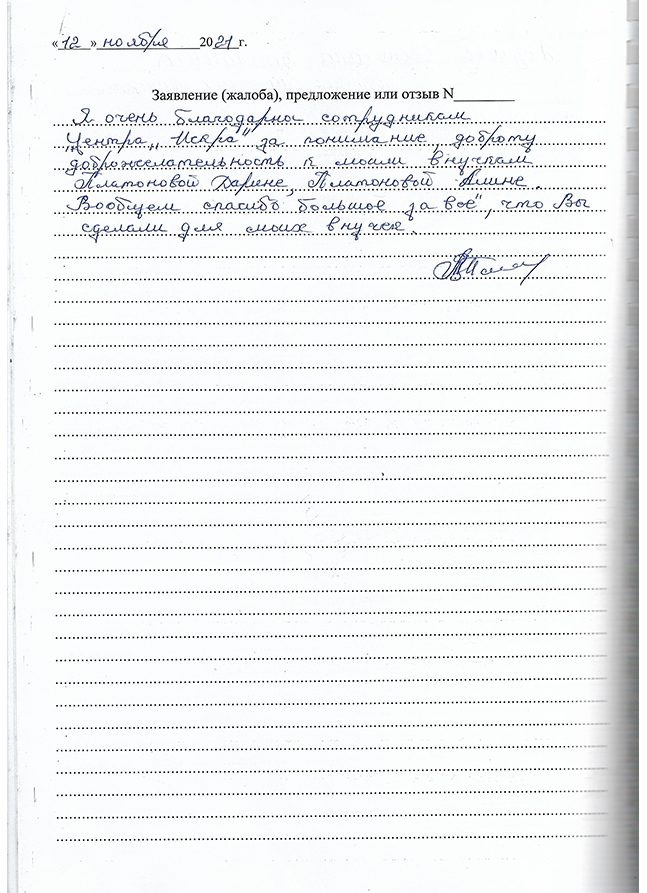 «12» ноября 2021 г.
Заявление (жалоба), предложение или отзыв N
Я очень благодарна сотрудникам
Центра „Искра" за понимание, доброту
доброжелательность к моим внучкам
Платоновой Дарине, Платоновой Алине.
Вообщем спасибо большое за всё", что Вы
сделали для моих внучек.